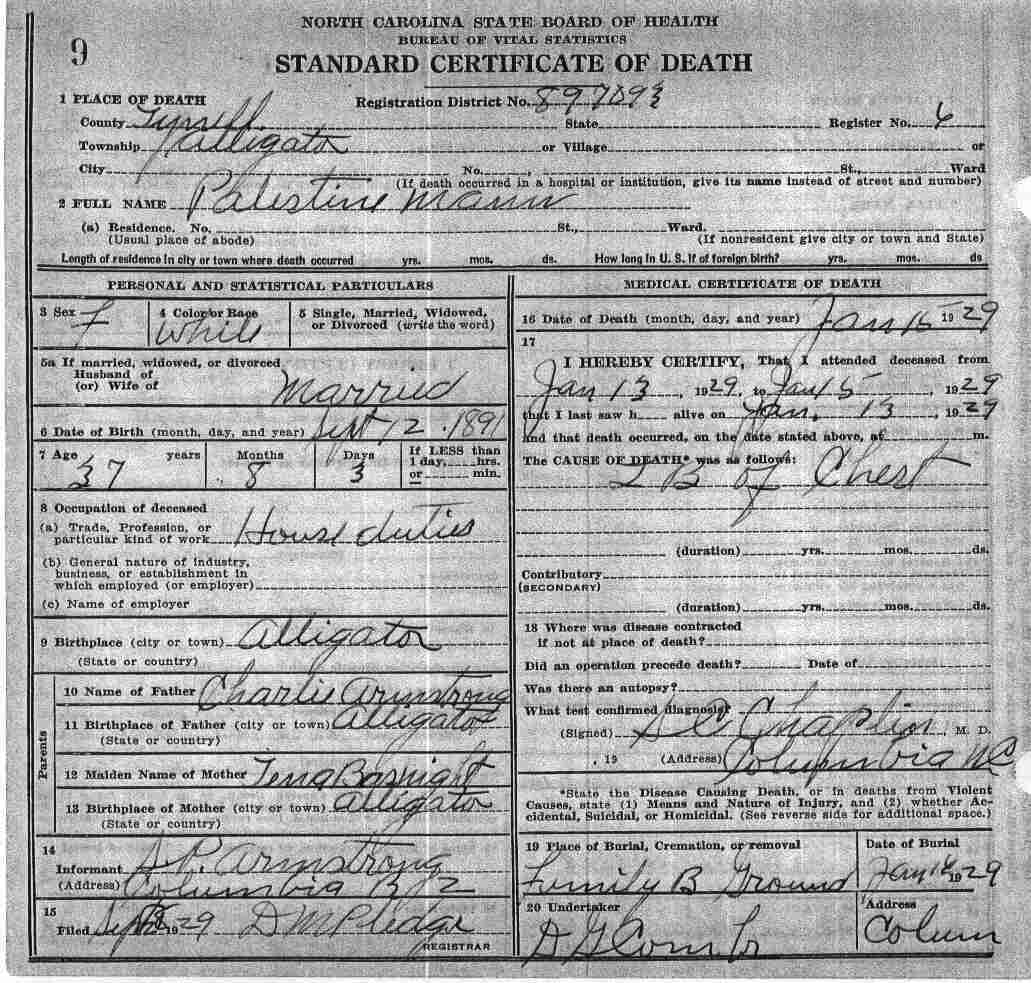 NORTH CAROLINA STATE BOARD OF HEALTH
BUREAU OF VITAL STATISTICS
9
STANDARD CERTIFICATE OF DEATH
1 PLACE OF DEATH Registration District No. 897093
County Tyrrell State Register No. 6
Township Alligator or Village or
City No. , St., Ward
(If death occurred in a hospital or institution, give its name instead of street and number)
2 FULL NAME Palestine Mann
(a) Residence. No. St., Ward.
(Usual place of abode) (If nonresident give city or town and State)
Length of residence in city or town where death occurred yrs. mos. ds. How long in U. S. if of foreign birth? yrs. mos. ds
PERSONAL AND STATISTICAL PARTICULARS
3 Sex F
4 Color or Race White
5 Single, Married, Widowed,
or Divorced (write the word)
5a If married, widowed, or divorced
Husband of
(or) Wife of Married
6 Date of Birth (month, day, and year) Sept 12 . 1891
7 Age 37 years Months 8 Days 3 If LESS than
1 day, hrs.
or min.
8 Occupation of deceased
(a) Trade, Profession, or
particular kind of work House duties
(b) General nature of industry,
business, or establishment in
which employed (or employer)
(c) Name of employer
9 Birthplace (city or town) Alligator
(State or country)
Parents
10 Name of Father Charlie Armstrong
11 Birthplace of Father (city or town) Alligator
(State or country)
12 Maiden Name of Mother Tena Basnight
13 Birthplace of Mother (city or town) Alligator
(State or country)
14
Informant Armstrong
(Address) Columbia R 2
15
Filed 1929 D M Pledge
REGISTRAR
MEDICAL CERTIFICATE OF DEATH
16 Date of Death (month, day, and year) Jan 15 1929
17
I HEREBY CERTIFY, That I attended deceased from
Jan 13 , 1929, to Jan 15 , 1929
that I last saw h alive on Jan. 13 , 1929
and that death occurred, on the date stated above, at m.
The CAUSE OF DEATH* was as follows:
T B of Chest
(duration) yrs. mos. ds.
Contributory
(SECONDARY)
(duration) yrs. mos. ds.
18 Where was disease contracted
if not at place of death?
Did an operation precede death? Date of
Was there an autopsy?
What test confirmed diagnosis?
(Signed) Chaplin , M. D.
, 19 (Address) Columbia NC
*State the Disease Causing Death, or in deaths from Violent
Causes, state (1) Means and Nature of Injury, and (2) whether Ac-
cidental, Suicidal, or Homicidal. (See reverse side for additional space.)
19 Place of Burial, Cremation, or removal
Family B Ground
Date of Burial
Jan 16 1929
20 Undertaker
Address
Colum